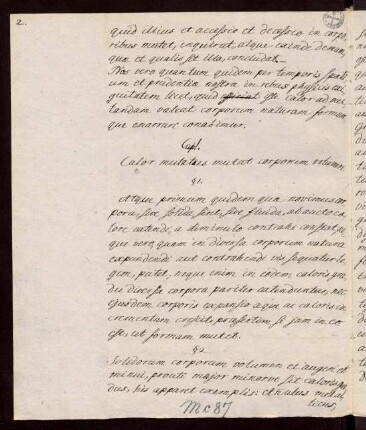 2.
quid illius et accessio et decessio in corpo,
ribus mutet, inquirat, atque exinde demum,
quæ et qualis sit illa, concludat.
Nos vero quantum quidem per temporis spati,
um et prudentiæ nostræ in rebus physicis exi,
guitatem licet, quid iste Calor ad mu,
tandam valeat corporum naturam formam
que enarrare conabimur.
Cap I.
Calor mutatus mutat corporum volumen
§1.
Atque primum quidem qua novimus cor
pora, sive solida sint, sive fluida, ab aucto ca,
lore extendi, a deminuto contrahi constat, ne,
que vero quam in diversa corporum natura
expandendi aut contrahendi vis sequatur le
gem, patet, neque enim in eodem caloris gra,
du diversa corpora pariter extenduntur, nec
ejusdem corporis expansio æque ac caloris in
crementum crescit, præsertim si jam in eo
est, ut formam mutet.
§2
Solidorum corporum volumen et augeri et
minui, prout major minorve sit caloris gra,
dus, his apparet exemplis: et halus metal
licus,
Mc87